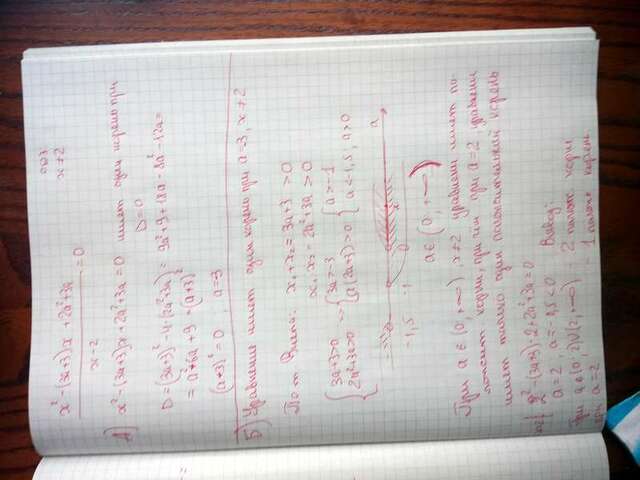 x² - (3a+3)x + 2a² + 3a / x-2 = 0 ОДЗ x ≠ 2
А) x² - (3a+3)x + 2a² + 3a = 0 имеет один корень при D=0
D = (3a+3)² - 4·(2a²+3a) = 9a² + 9 + 18a - 8a² - 12a =
= a² + 6a + 9 = (a+3)²
(a+3)² = 0, a = -3
Б) Уравнение имеет один корень при a = -3, x ≠ 2
По т Виета: x₁ + x₂ = 3a+3 > 0
x₁ · x₂ = 2a² + 3a > 0
{ 3a+3>0 { 3a>-3 { a>-1
2a²+3a>0 a(2a+3)>0 a<-1,5, a>0
-1,5 -1 0 2 a
a ∈ (0; +∞)
При a ∈ (0; +∞) x ≠ 2 уравнение имеет по-
ложит корни, при чем при a = 2 уравнение
имеет только один положительный корень
2² - (3a+3)·2 + 2a² + 3a = 0
a = 2 a = -0,5 < 0 Вывод:
При a ∈ (0; 2)∪(2; +∞) - 2 полож. корня
при a = 2 - 1 полож корень